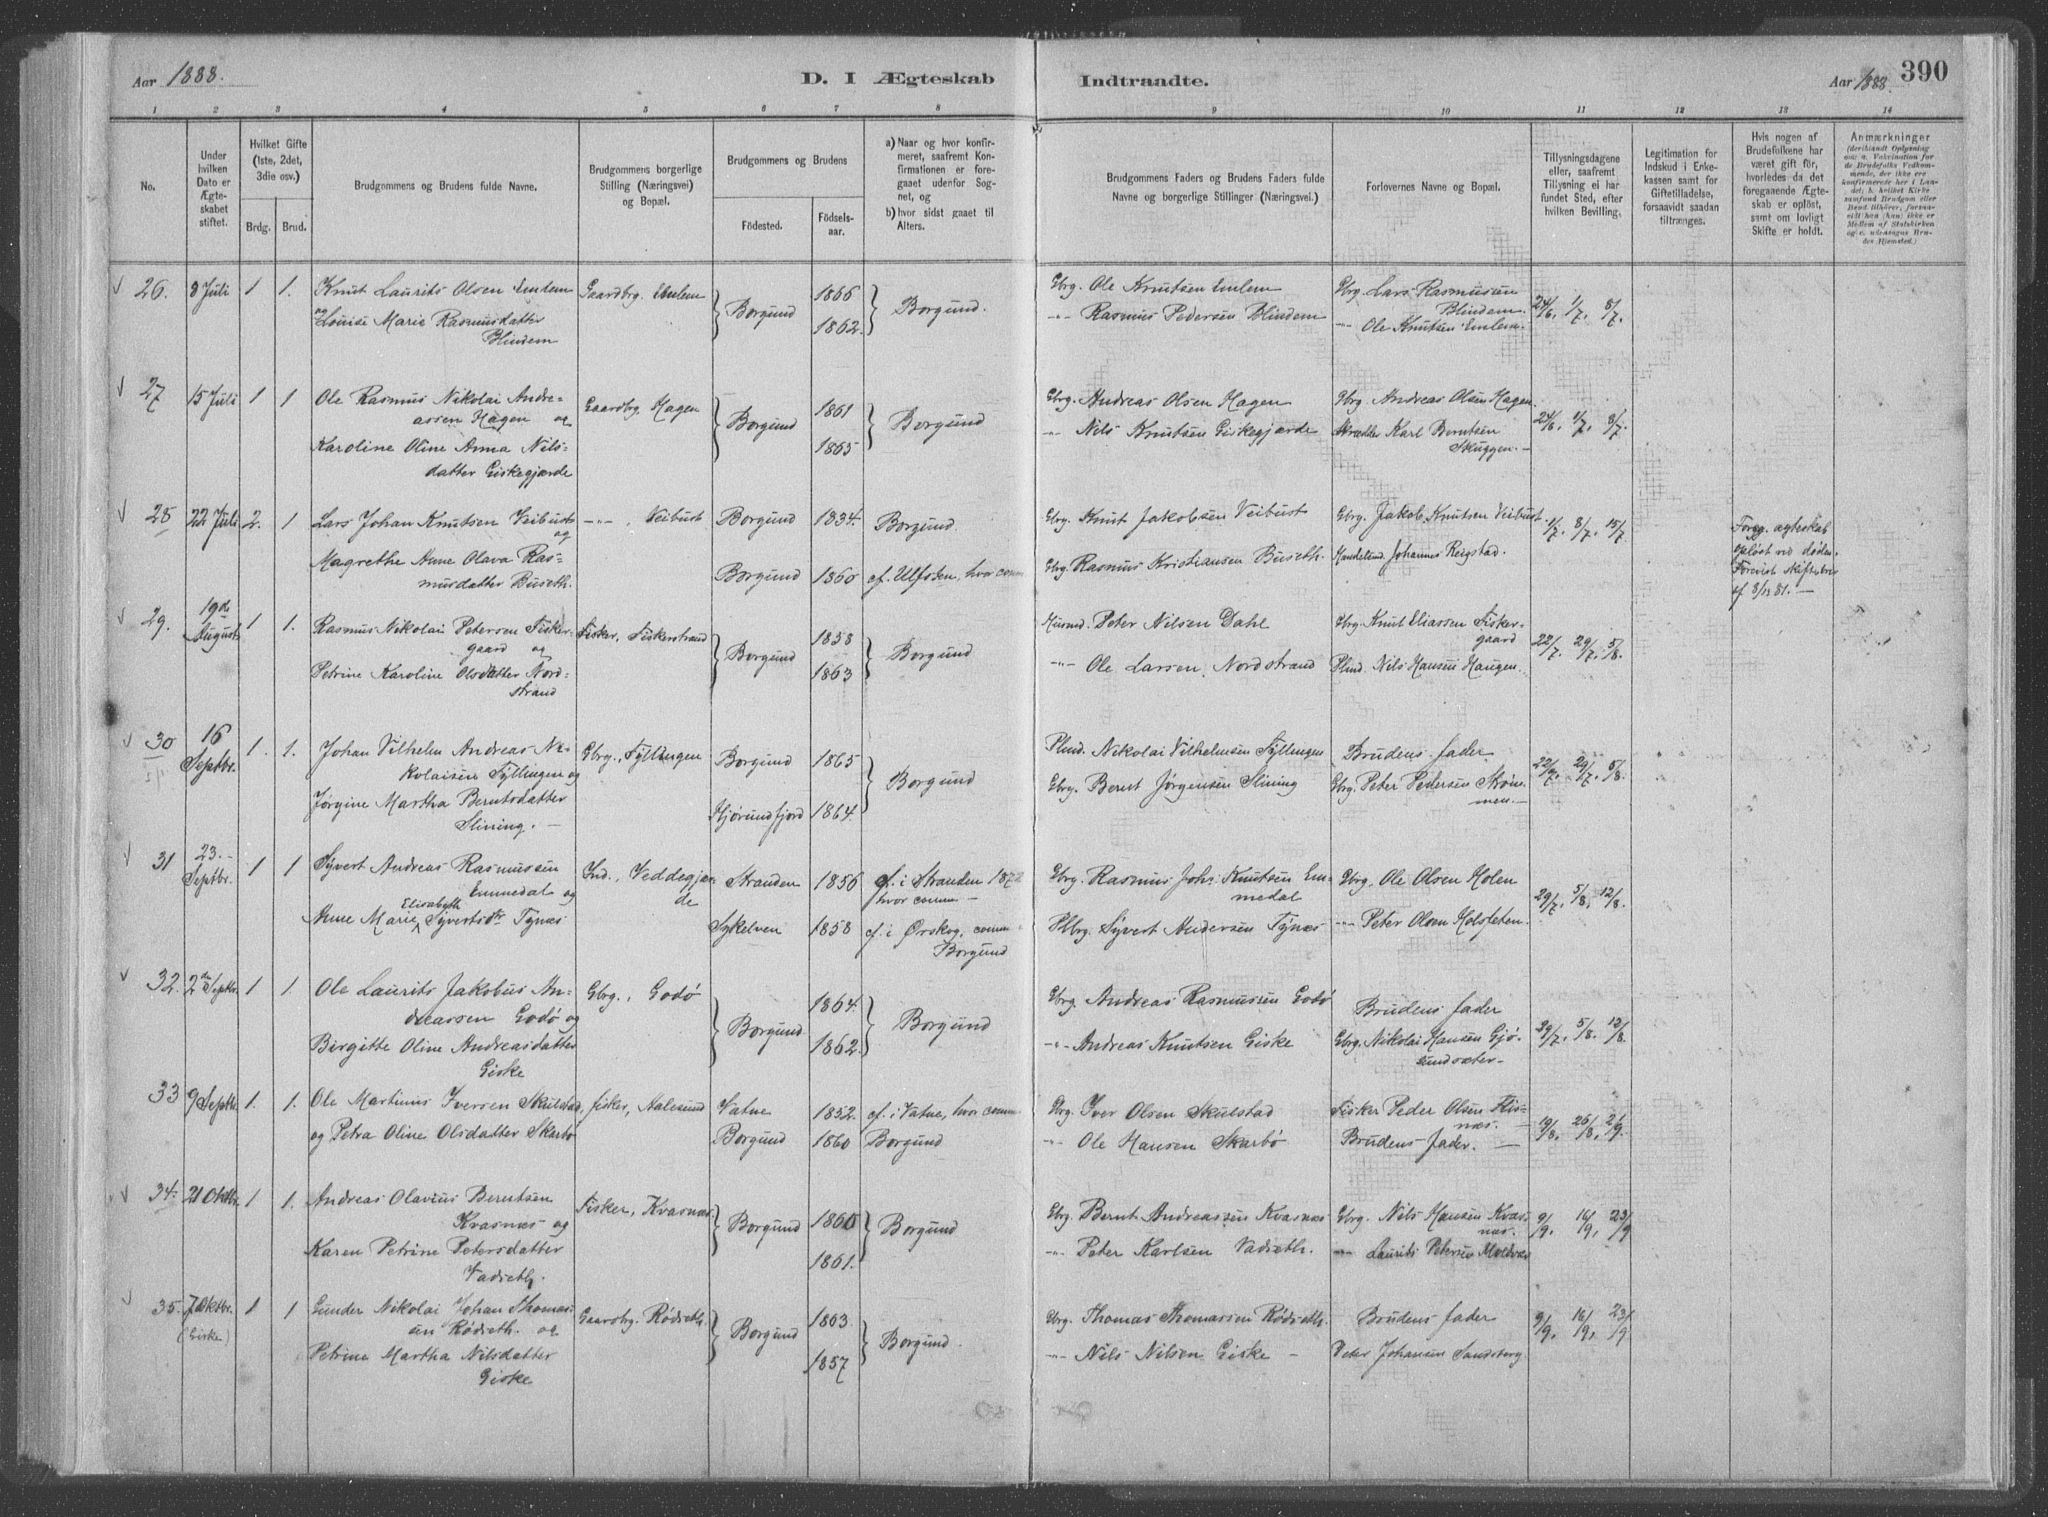 Aar 1888.
D. I Ægteskab
Indtraadte.
Aar 1888.
390
1 2 3 4 5 6 7 8 9 10 11 12 13 14
No.
Under hvilken Dato er Ægteskabet stiftet.
Hvilket Gifte (1ste, 2det, 3die osv.)
Brdg. Brud.
Brudgommens og Brudens fulde Navne.
Brudgommens borgerlige Stilling (Næringsvei) og Bopæl.
Brudgommens og Brudens
Födested. Födselsaar.
a) Naar og hvor konfirmeret, saafremt Konfirmationen er foregaaet udenfor Sognet, og
b) hvor sidst gaaet til Alters.
Brudgommens Faders og Brudens Faders fulde Navne og borgerlige Stillinger (Næringsvei.)
Forlovernes Navne og Bopæl.
Tillysningsdagene eller, saafremt Tillysning ei har fundet Sted, efter hvilken Bevilling.
Legitimation for Indskud i Enkekassen samt for Giftetilladelse, forsaavidt saadan tiltrænges.
Hvis nogen af Brudefolkene har været gift för, hvorledes da det foregaaende Ægteskab er oplöst, samt om lovligt Skifte er holdt.
Anmærkninger
26. 8 Juli 1 1. Knut Laurits Olsen Emlem Gaardbrg. Emlem Borgund 1866 Borgund. Gbrg. Ole Knutsen Emlem Gbrg. Lars Rasmussen Blindem. 24/6, 1/7, 8/7.
og Louise Marie Rasmusdatter Blindem 1862. -"- Rasmus Pedersen Blindem -"- Ole Knutsen Emlem.
27 15 Juli 1 1 Ole Rasmus Nikolai Andreassen Hagen og Gaardbrg. Hagen Borgund 1861 Borgund Gbrg. Andreas Olsen Hagen Gbrg. Andreas Olsen Hagen. 24/6, 1/7, 8/7.
Karoline Oline Anna Nilsdatter Giskegjærde 1865 " Nils Knutsen Giskegjærde Karl Berntsen Skuggen.
28 22 Juli 2. 1 Lars Johan Knutsen Veibust og -"-, Veibust Borgund 1834. Borgund. Gbrg. Knut Jakobsen Veibust Gbrg. Jakob Knutsen Veibust. 1/7, 8/7, 15/7. Foreg. ægteskab opløst ved døden. Forevist Skifte af 8/12 81.
Magrethe Anne Olava Rasmusdatter Buseth. Borgund 1860 cf. Ulfsten, hvor comm Gbrg. Rasmus Kristiansen Buseth. Johannes Reigstad.
29. 19de August 1 1. Rasmus Nikolai Petersen Fiskergaard og Fisker, Fiskerstrand Borgund 1858 Borgund Husmd. Peter Nilsen Dahl Gbrg. Knut Eliassen Fiskergaard 22/7, 29/7, 5/8.
Petrine Karoline Olsdatter Nordstrand 1863 -"- Ole Larsen Nordstrand Plmd. Nils Hansen Haugen.
30 16 Septbr. 1. 1. Johan Vilhelm Andreas Nikolaisen Fyllingen og Gbrg., Fyllingen Borgund 1865 Borgund Plmd. Nikolai Vilhelmsen Fyllingen Brudens fader 22/7, 29/7, 5/8.
Jørgine Martha Berntsdatter Slining. Hjørundfjord 1864. Gbrg. Bernt Jørgensen Slining Gbrg. Peter Pedersen Strømmen.
31 23. Septbr. 1 1 Syvert Andreas Rasmussen Emmedal og Ind., Veddegjærde Stranden 1856 cf. i Stranden 1872 hvor comm Gbrg. Rasmus Johs Knutsen Emmedal Gbrg. Ole Olsen Holen 29/7, 5/8, 12/8.
Anne Marie Elisabeth Syvertsdtr Tynæs Sykelven 1858 cf. i Ørskog, comm. Borgund Plbrg. Syvert Andersen Tynæs -"- Peter Olsen Holsteten.
32. 2den Septbr. 1 1. Ole Laurits Jakobus Andreassen Godø og Gbrg., Godø Borgund 1864. Borgund Gbrg. Andreas Rasmussen Godø Brudens fader 29/7, 5/8, 12/8.
Birgitte Oline Andreasdatter Giske 1862. -"- Andreas Knutsen Giske Gbrg. Nikolai Hansen Gjøsundsæter
33 9 Septbr. 1. 1. Ole Martinus Iversen Skulstad, fisker, Aalesund Vatne 1852 cf. i Vatne, hvor comm Gbrg. Iver Olsen Skulstad Fisker Peder Olsen Flisnæs. 19/8, 26/8, 2/9.
og Petra Oline Olsdatter Skarbø Borgund 1860 Borgund -"- Ole Hansen Skarbø Brudens fader.
34. 21 Oktbr. 1 1. Andreas Olavius Berntsen Kvasnæs og Fisker, Kvasnæs. Borgund 1860 Borgund Gbrg. Bernt Andreassen Kvasnæs Gbrg. Nils Hansen Kvasnæs. 9/9, 16/9, 23/9
Karen Petrine Petersdatter Vadseth. 1861. -"- Peter Karlsen Vadseth. -"- Laurits Petersen
35. 7 Oktbr. (Giske) 1 1 Gunder Nikolai Johan Thomassen Rødseth. og Gaardbg. Rødseth. Borgund 1863 Borgund. Gbrg. Thomas Thomassen Rødseth. Brudens fader 9/9, 16/9, 23/9
Petrine Martha Nilsdatter Giske 1857 -"- Nils Nilsen Giske Peter Johansen Sandsberg